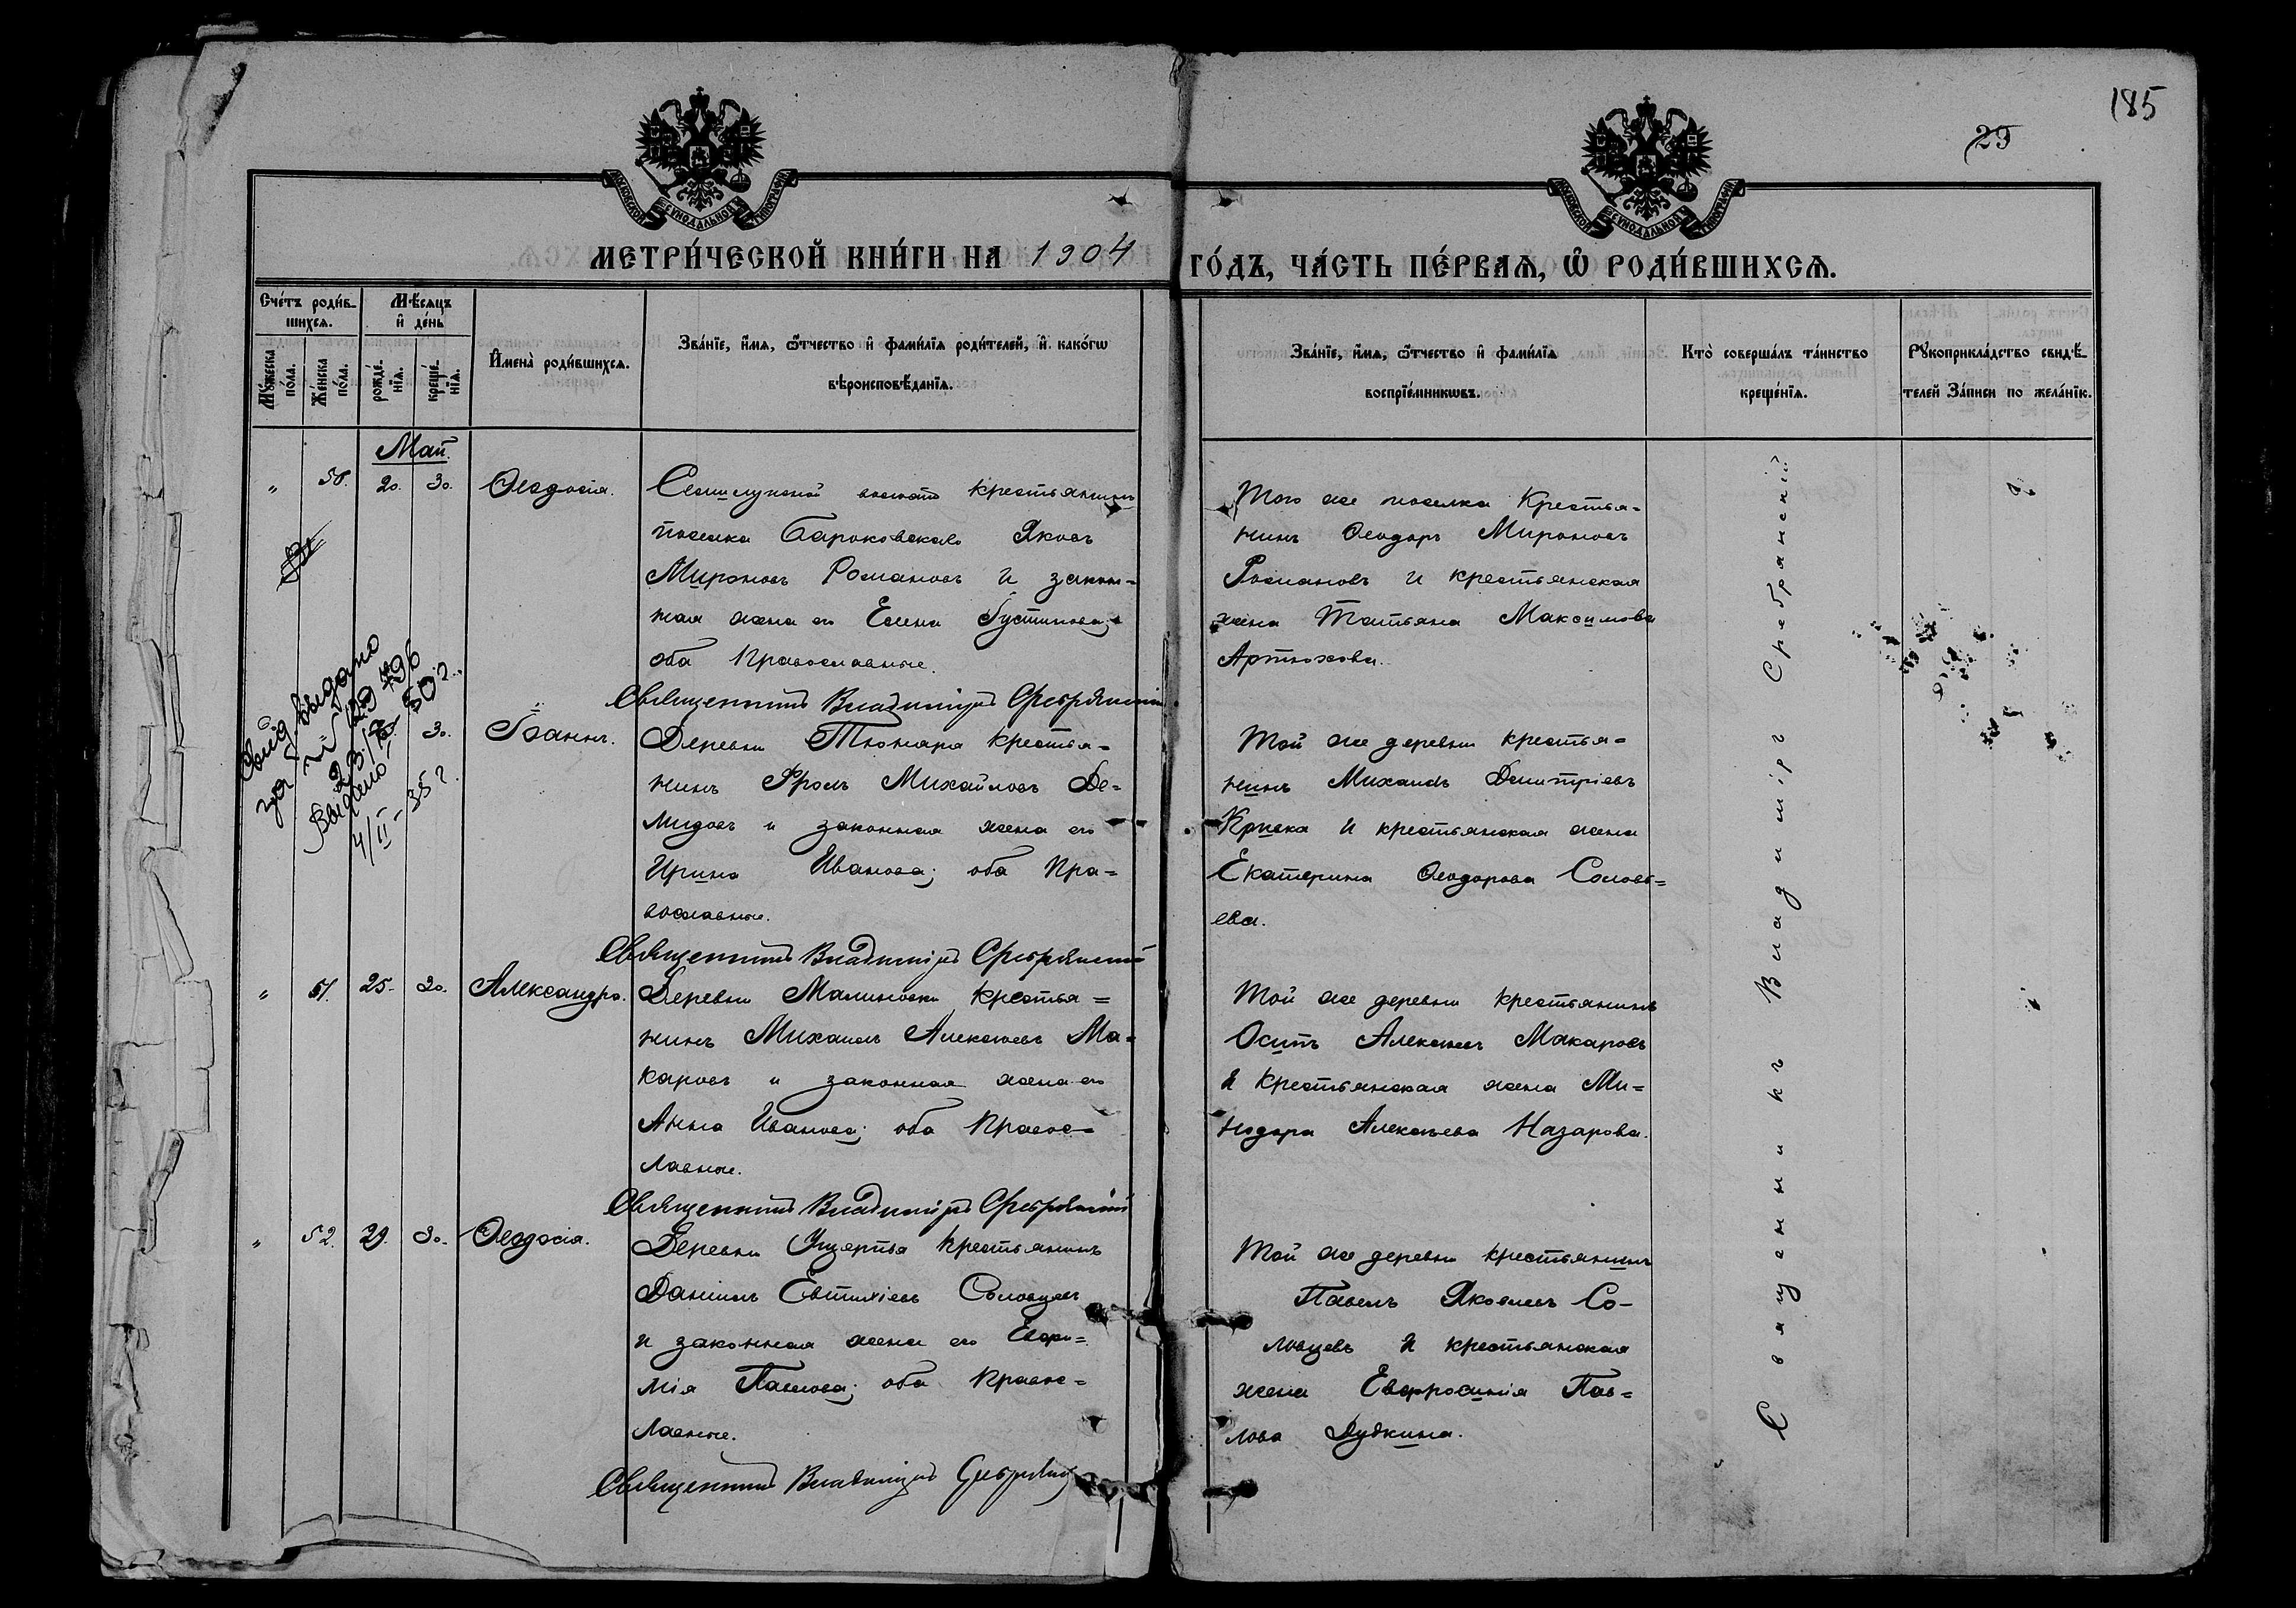 185
29
МОСКОВСКОЙ СѴНОДАЛЬНОЙ ТИПОГРАФІИ
МОСКОВСКОЙ СѴНОДАЛЬНОЙ ТИПОГРАФІИ
МЕТРИ́ЧЕСКОЙ КНИ́ГИ НА 1904
ГО́ДЪ, ЧА́СТЬ ПЕ́РВАѦ, Ѡ РОДИ́ВШИХСѦ.
Сче́тъ роди́в-
шихсѧ.
Мꙋ́жеска по́ла.
Же́нска по́ла.
Мѣ́сѧцъ
и҆ де́нь
рожде́-
нїѧ.
креще́-
нїѧ.
И҆мена̀ роди́вшихсѧ.
Зва́нїе, и҆́мѧ, ѻ҆́тчество и҆ фами́лїѧ роди́телей, и҆ како́гѡ
вѣроисповѣ́данїѧ.
Зва́нїе, и҆́мѧ, ѻ҆́тчество и҆ фами́лїѧ
воспрїе́мникѡвъ.
Кто̀ соверша́лъ та́инство
креще́нїѧ.
Рꙋкоприкла́дство свидѣ́-
телей За́писи по жела́нїю.
Май.
" 50. 20. 30. Ѳеодосія.
волости крестьянинъ
поселка Яковъ
Мироновъ Романовъ и закон-
ная жена его Елена Іустинова;
оба Православные.
Священникъ Владиміръ Сребрянскій
Того же поселка Крестья-
нинъ Ѳеодоръ Мироновъ
Романовъ и крестьянская
жена Татьяна Максимова
Артюхова.
Свид выдано
за №
Выдано
4/II-35 г.
30. Іоаннъ.
Деревни Тюнара крестья-
нинъ Фролъ Михайловъ Де-
мидовъ и законная жена его
Ирина Иванова; оба Пра-
вославные.
Священникъ Владиміръ Сребрянскій
Той же деревни крестья-
нинъ Михаилъ Димитріевъ
и крестьянская жена
Екатерина Ѳеодорова Соловь-
ева.
" 51. 25. 30. Александра.
Деревни Малиновки крестья-
нинъ Михаилъ Алексѣевъ Ма-
каровъ и законная жена его
Анна Иванова; оба Правос-
лавные.
Священникъ Владиміръ Сребрянскій
Той же деревни крестьянинъ
Осипъ Алексѣевъ Макаровъ
и Крестьянская жена Ми-
нодора Алексѣева Назарова.
" 52. 29. 30. Ѳеодосія.
Деревни крестьянинъ
Даніилъ Евтихіевъ Соловцевъ
и законная жена его Евфи-
мія Павлова; оба Правос-
лавные.
Священникъ Владиміръ Сребрянскій
Той же деревни крестьянинъ
Павелъ Яковлевъ Со-
ловцевъ и крестьянская
жена Евфросинія Пав-
лова Дудкина.
Священникъ Владиміръ Сребрянскій